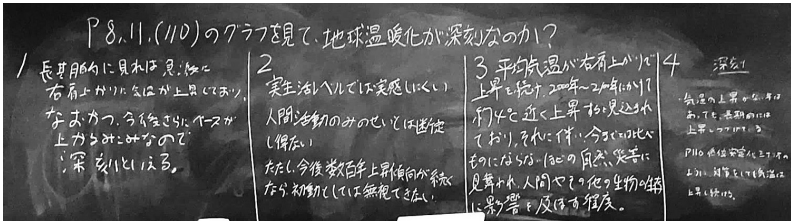 P8,11,(110)のグラフを見て、地球温暖化が深刻なのか?
1
長期的に見れば急激に
右肩上がりに気温が上昇しており、
なおかつ、今後さらにペースが
上がるみこみなので
深刻といえる。
2
実生活レベルでは実感しにくい
人間活動のみのせいとは断定
し得ない
ただし、今後数百年上昇傾向が続く
なら、初動としては無視できない
3 平均気温が右肩上がりで
上昇を続け、2000年〜2100年にかけて
約4℃近く上昇すると見込まれ
ており、それに伴い今までとは比べ
ものにならないほどの自然災害に
見舞われ、人間やその他の生物の生存
に影響を及ぼす程度。
4 深刻
・気温の上昇がない年は
あっても、長期的には
上昇しつづけている
P110 低位安定化シナリオの
ように、対策をしても気温は
上昇し続ける。